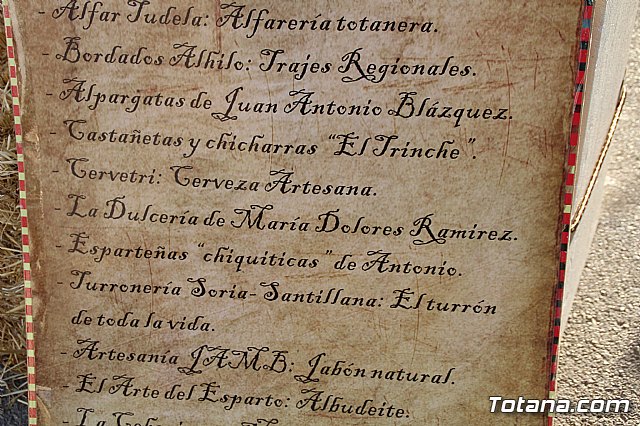 - Alfar Tudela: Alfarería totanera.
- Bordados Alhilo: Trajes Regionales.
- Alpargatas de Juan Antonio Blázquez.
- Castañetas y chicharras "El Trinche".
- Cervetri: Cerveza Artesana.
- La Dulcería de María Dolores Ramirez.
- Esparteñas "chiquiticas" de Antonio.
- Turronería Soria-Santillana: El turrón
de toda la vida.
- Artesanía JAMB: Jabón natural.
- El Arte del Esparto: Albudeite.
- La
Totana.com